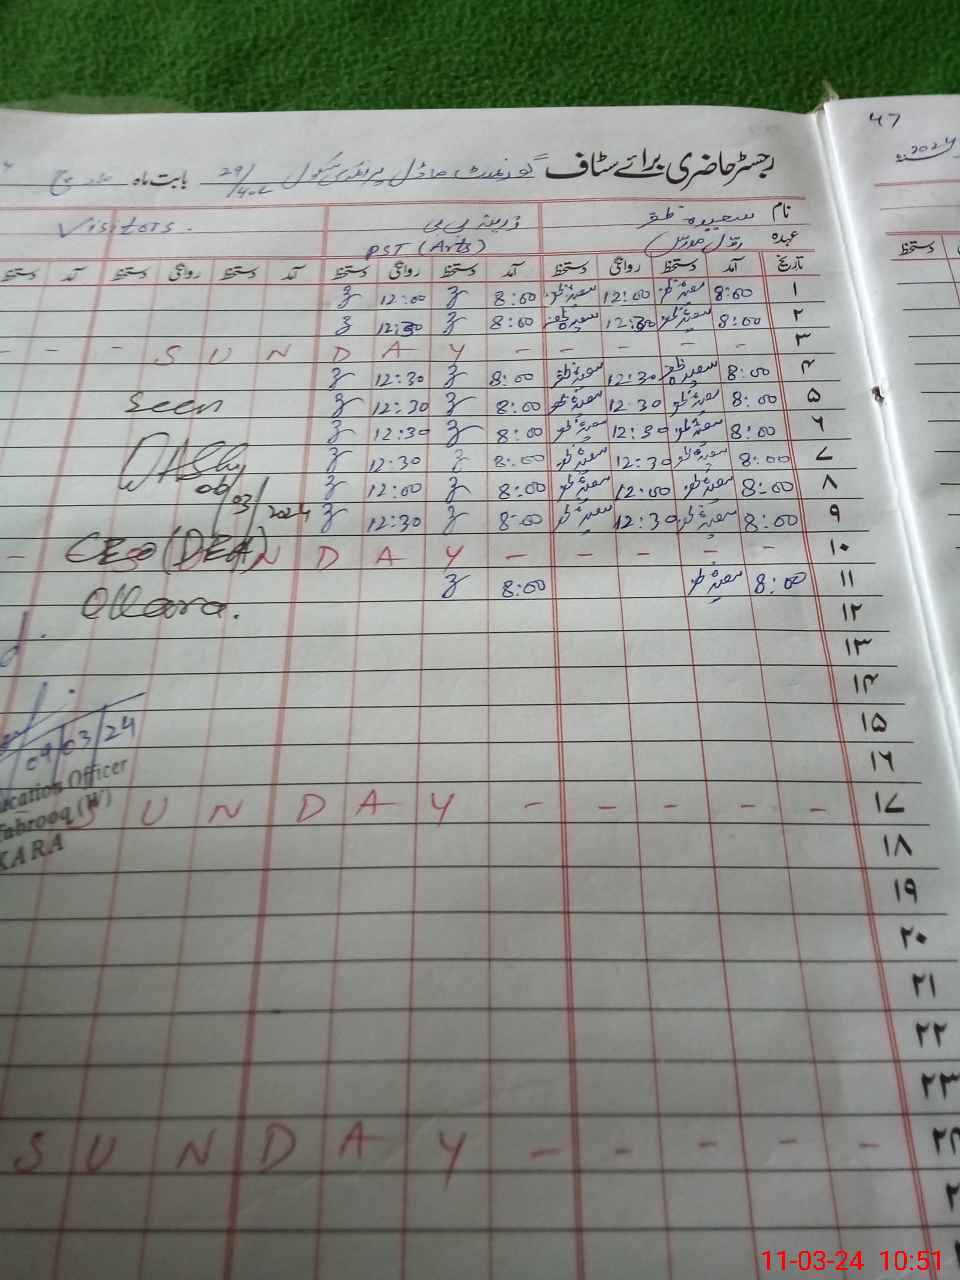 ۴۷
2024
رجسٹر حاضری برائے سٹاف گورنمنٹ ماڈل پرائمری سکول 29/4.L بابت ماہ مارچ
نام سعیدہ ظفر زرینہ بی بی Visitors.
عہدہ PST (Arts)
تاریخ آمد دستخط روانگی دستخط آمد دستخط روانگی دستخط آمد دستخط روانگی دستخط آمد دستخط
۱ 8:00 سعیدہ ظفر 12:00 سعیدہ ظفر 8:00 12:00
۲ 8:00 سعیدہ ظفر 12:30 سعیدہ ظفر 8:00 12:30
۳ - - - - - S U N D A Y - - -
۴ 8:00 سعیدہ ظفر 12:30 سعیدہ ظفر 8:00 12:30
۵ 8:00 سعیدہ ظفر 12:30 سعیدہ ظفر 8:00 12:30 Seen
۶ 8:00 سعیدہ ظفر 12:30 سعیدہ ظفر 8:00 12:30
۷ 8:00 سعیدہ ظفر 12:30 سعیدہ ظفر 8:00 12:30
۸ 8:00 سعیدہ ظفر 12:00 سعیدہ ظفر 8:00 12:00
۹ 8:00 سعیدہ ظفر 12:30 سعیدہ ظفر 8:00 12:30 06/03/2024
۱۰ - - - - - S U N D A Y - CEO (DEA)
۱۱ 8:00 سعیدہ ظفر 8:00 Okara.
۱۲
۱۳
۱۴
۱۵
09/03/24
۱۶
Education Officer
۱۷ - - - - - S U N D A Y
Tabrooq (W)
OKARA
۱۸
۱۹
۲۰
۲۱
۲۲
۲۳
۲۴ - - - - - S U N D A Y
11-03-24 10:51